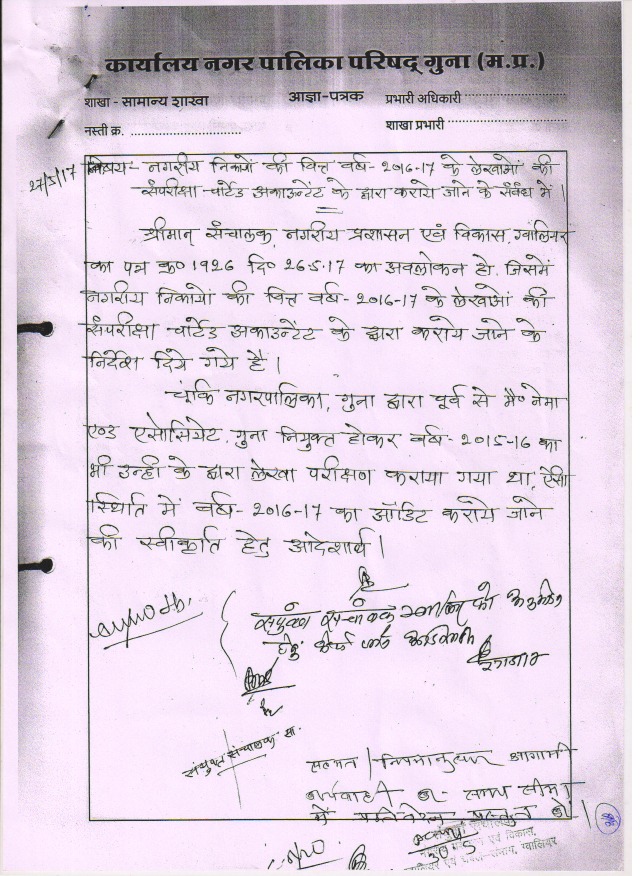 कार्यालय नगर पालिका परिषद् गुना (म.प्र.)
शाखा - सामान्य शाखा आज्ञा-पत्रक प्रभारी अधिकारी
नस्ती क्र. शाखा प्रभारी
27/5/17 विषय- नगरीय निकायों की वित्त वर्ष- 2016-17 के लेखाओं की
संपरीक्षा चार्टेड अकाउन्टेंट के द्वारा कराये जाने के संबंध में।
श्रीमान् संचालक, नगरीय प्रशासन एवं विकास, ग्वालियर
का पत्र क्र० 1926 दि० 26.5.17 का अवलोकन हो, जिसमें
नगरीय निकायों की वित्त वर्ष- 2016-17 के लेखाओं की
संपरीक्षा चार्टेड अकाउन्टेंट के द्वारा कराये जाने के
निर्देश दिये गये है।
चूंकि नगरपालिका, गुना द्वारा पूर्व से मै० नेमा
एण्ड एसोसियेट, गुना नियुक्त होकर वर्ष- 2015-16 का
भी उन्ही के द्वारा लेखा परीक्षण कराया गया था, ऐसी
स्थिति में वर्ष- 2016-17 का ऑडिट कराये जाने
की स्वीकृति हेतु आदेशार्थ।
संयुक्त संचालक ग्वालियर को
हेतु
संयुक्त संचालक सा.
सहमत। नियमानुसार आगामी
कार्यवाही कर समय सीमा
में प्रतिवेदन प्रस्तुत करें।
30/5
एवं विकास,
ग्वालियर